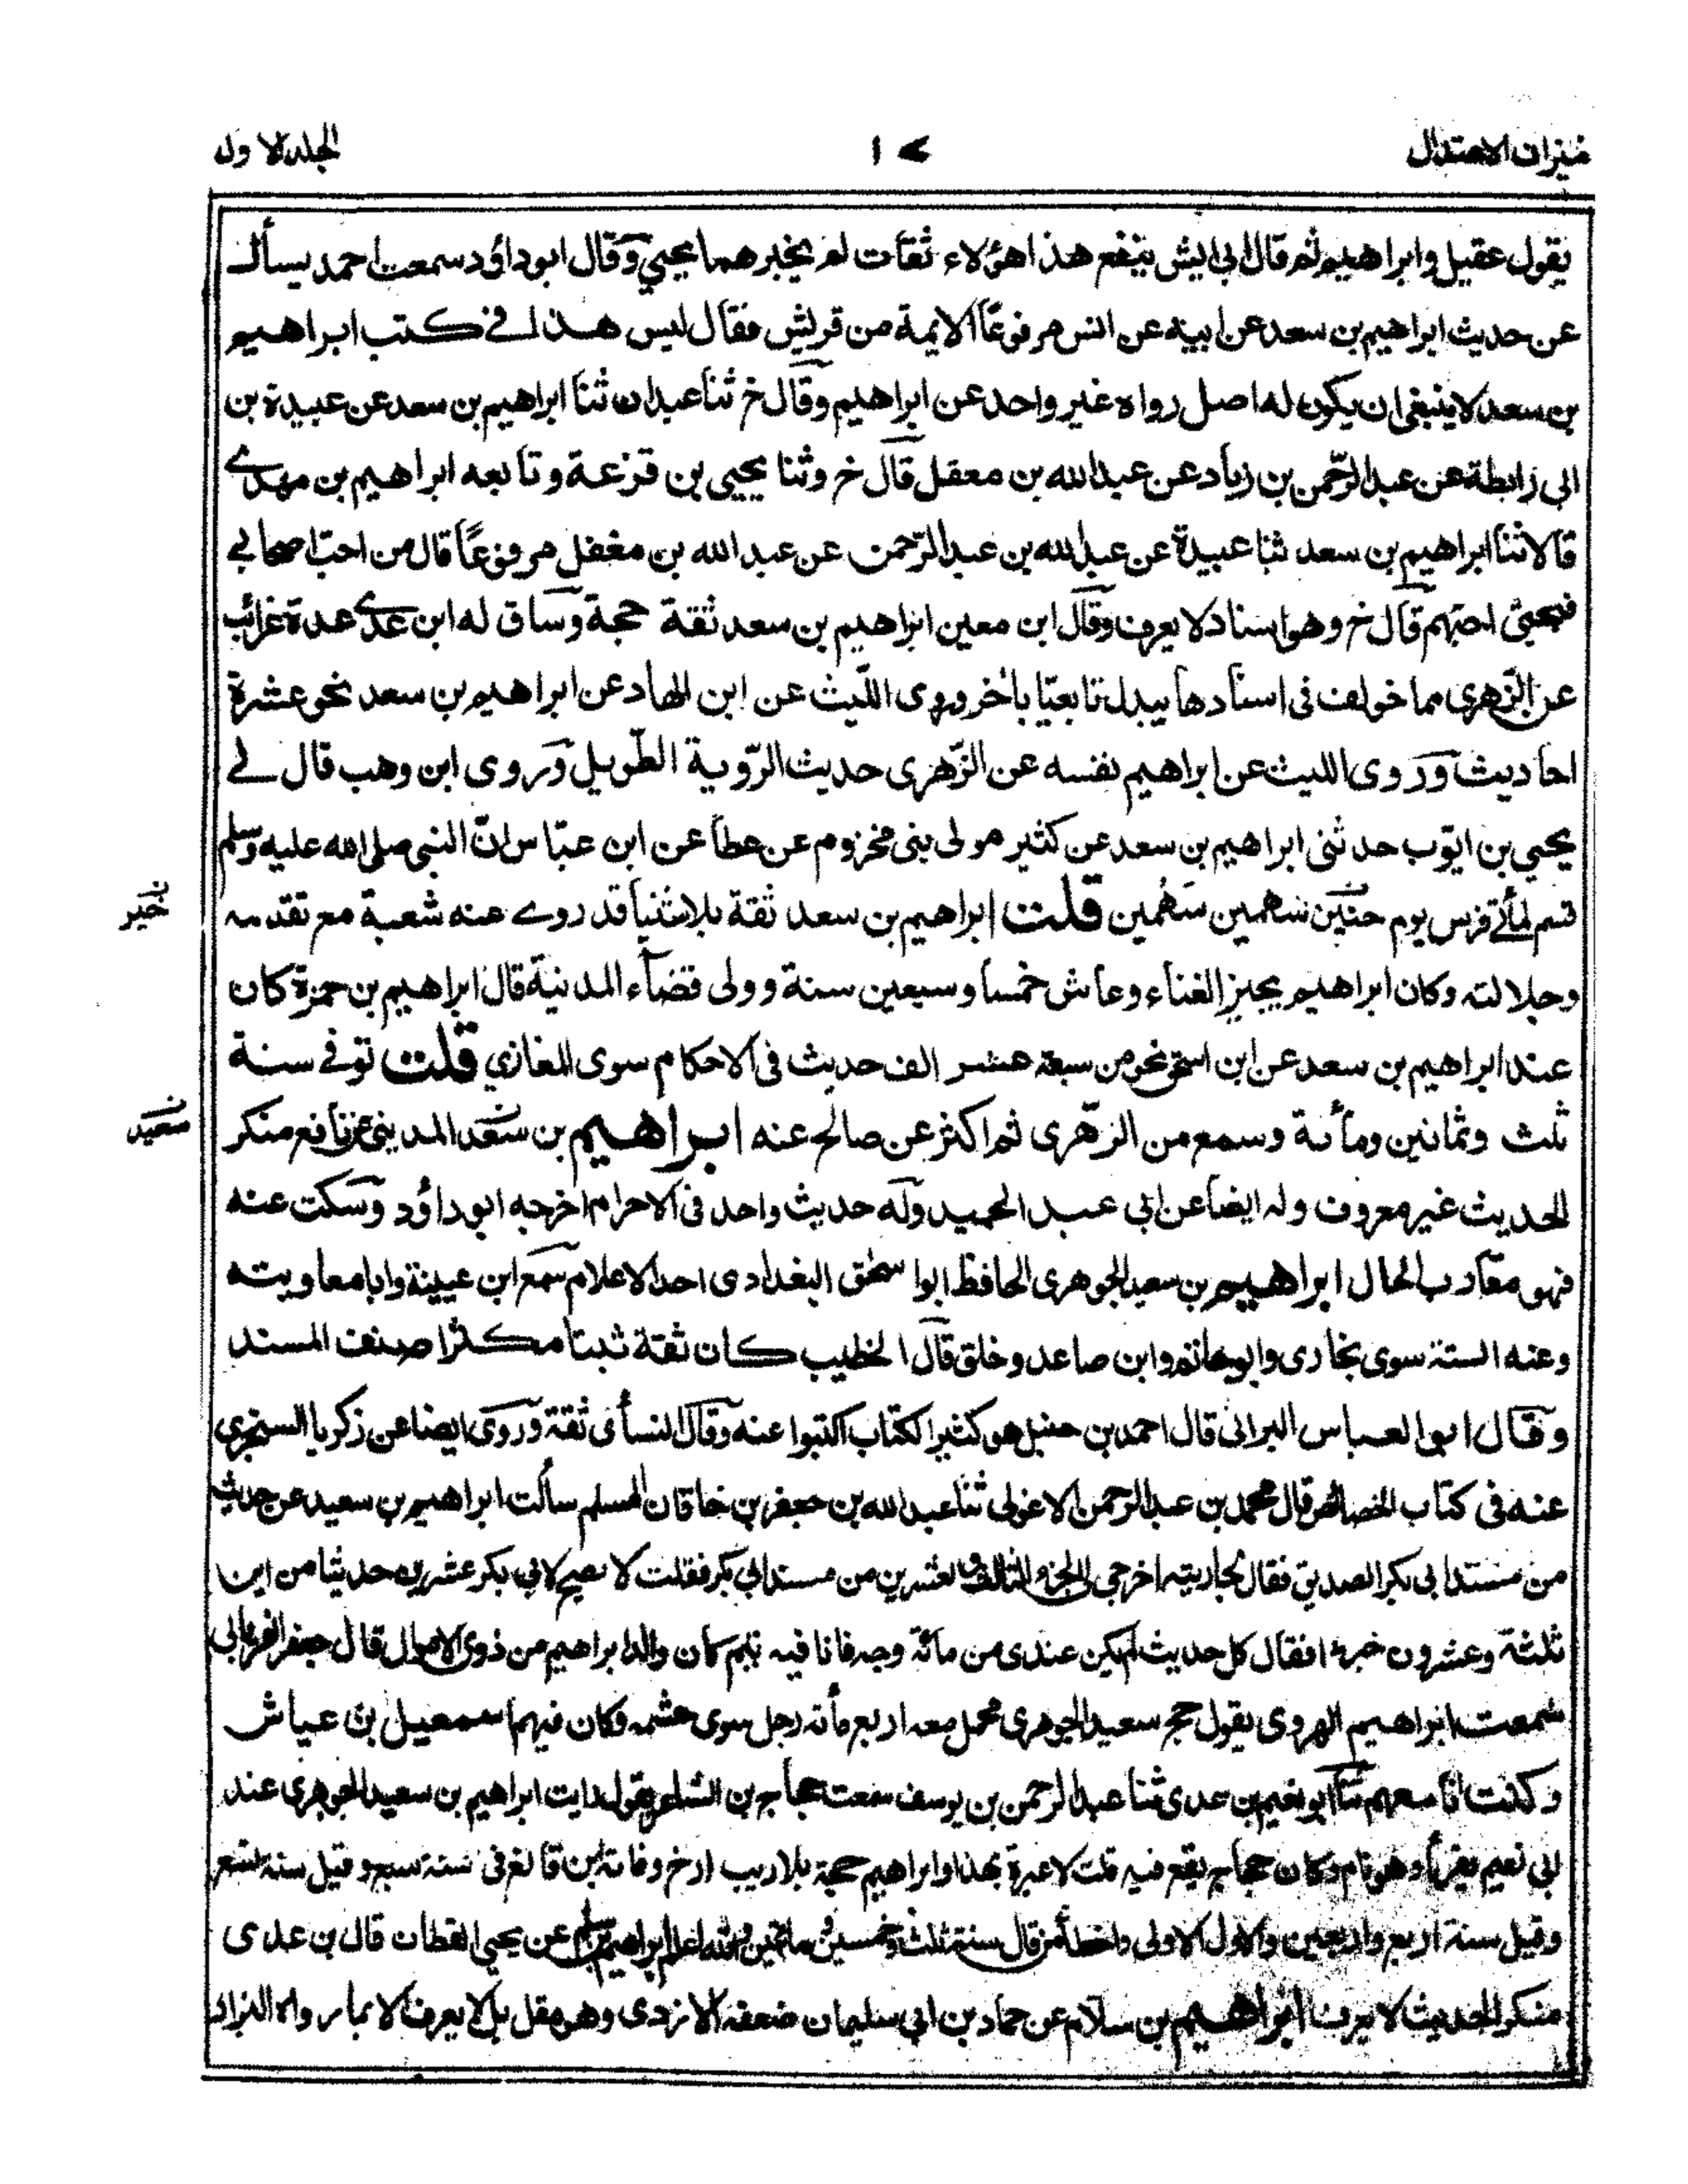 ميزان الاعتدال
١٧
الجلد الاول
يقول عقيل وابراهيم ثم قال ابى ايش ينفع هذا هؤلاء ثقات لم يخبرهما يحيى وقال ابوداؤد سمعت احمد يسأل
عن حديث ابراهيم بن سعد عن ابيه عن انس مرفوعاً الايمة من قريش فقال ليس هذا فى كتب ابراهيم
بن سعد لا ينبغى ان يكون له اصل رواه غير واحد عن ابراهيم وقال خ ثنا عبدان ثنا ابراهيم بن سعد عن عبيدة بن
ابى رابطة عن عبد الرحمن بن زياد عن عبد الله بن معقل قال خ وثنا يحيى بن قزعة وتابعه ابراهيم بن مهدى
قالا ثنا ابراهيم بن سعد ثنا عبيدة عن عبد الله بن عبد الرحمن عن عبد الله بن مغفل مرفوعاً قال من احب اصحابى
فبحبى احبهم قال خ وهو اسناد لا يعرف وقال ابن معين ابراهيم بن سعد ثقة حجة وساق له ابن عدى عدة غرائب
عن الزهرى مما خولف فى اسنادها يبدل تابعيا باخر وروى الليث عن ابن الهاد عن ابراهيم بن سعد نحو عشرة
احاديث وروى الليث عن ابراهيم نفسه عن الزهرى حديث الروية الطويل وروى ابن وهب قال لى
يحيى بن ايوب حدثنى ابراهيم بن سعد عن كثير مولى بنى مخزوم عن عطا عن ابن عباس ان النبى صلى الله عليه وسلم
قسم لمأتى فرس يوم حنين سهمين سهمين قلت ابراهيم بن سعد ثقة بلا ثنيا قد روى عنه شعبة مع تقدمه
خيبر
وجلالته وكان ابراهيم يجيز الغناء وعاش خمسا وسبعين سنة وولى قضاء المدينة قال ابراهيم بن حمزة كان
عند ابراهيم بن سعد عن ابن اسحق نحو من سبعة عشر الف حديث فى الاحكام سوى المغازى قلت توفى سنة
ثلث وثمانين ومأئة وسمع من الزهرى ثم اكثر عن صالح عنه ابراهيم بن سعد المدينى عن نافع منكر
سعيد
الحديث غير معروف وله ايضا عن ابى عبد الحميد وله حديث واحد فى الاحرام اخرجه ابوداؤد وسكت عنه
فهو مقارب الحال ابراهيم بن سعيد الجوهرى الحافظ ابو اسحق البغدادى احد الاعلام سمع ابن عيينة وابا معاوية
وعنه الستة سوى بخارى وابوحاتم وابن صاعد وخلق قال الخطيب كان ثقة ثبتا مكثرا صنف المسند
وقال ابو العباس البراثى قال احمد بن حنبل هو كثير الكتاب اكتبوا عنه وقال النسأى ثقة وروى ايضا عن زكريا السنجرى
عنه فى كتاب الخصائص قال محمد بن عبد الرحمن ثنا عبد الله بن جعفر بن خاقان المسلم سألت ابراهيم بن سعيد عن حديث
من مسند ابى بكر الصديق فقال لجاريته اخرجى الجزء الثالث والعشرين من مسند ابى بكر فقلت لا يصح لابى بكر عشرين حديثا من اين
ثلثة وعشرون جزءا فقال كل حديث لم يكن عندى من مائة وجه فانا فيه يتيم كان والد ابراهيم من ذوى الاموال قال جعفر الفريابى
سمعت ابراهيم الهروى يقول حج سعيد الجوهرى فحمل معه اربع مأئة رجل سوى حشمه وكان فيهم اسمعيل بن عياش
وكنت انا معهم ثنا ابو نعيم بن عدى ثنا عبد الرحمن بن يوسف سمعت حجاج بن الشاعر يقول رايت ابراهيم بن سعيد الجوهرى عند
ابى نعيم يقرأ وهو نام وكان حجاج يقع فيه قلت لا عبرة بهذا وابراهيم حجة بلا ريب ارخ وفاته ابن قانع فى سنة سبع وقيل سنة تسع
وقيل سنة اربع واربعين والاول الاولى واخطأ من قال سنة ثلث وخمسين ومائتين والله اعلم ابراهيم بن عن يحيى القطان قال بن عدى
منكر الحديث لا يعرف ابراهيم بن سلام عن حماد بن ابى سليمان ضعفه الازدى وهو مقل بل لا يعرف الا بما رواه البزار